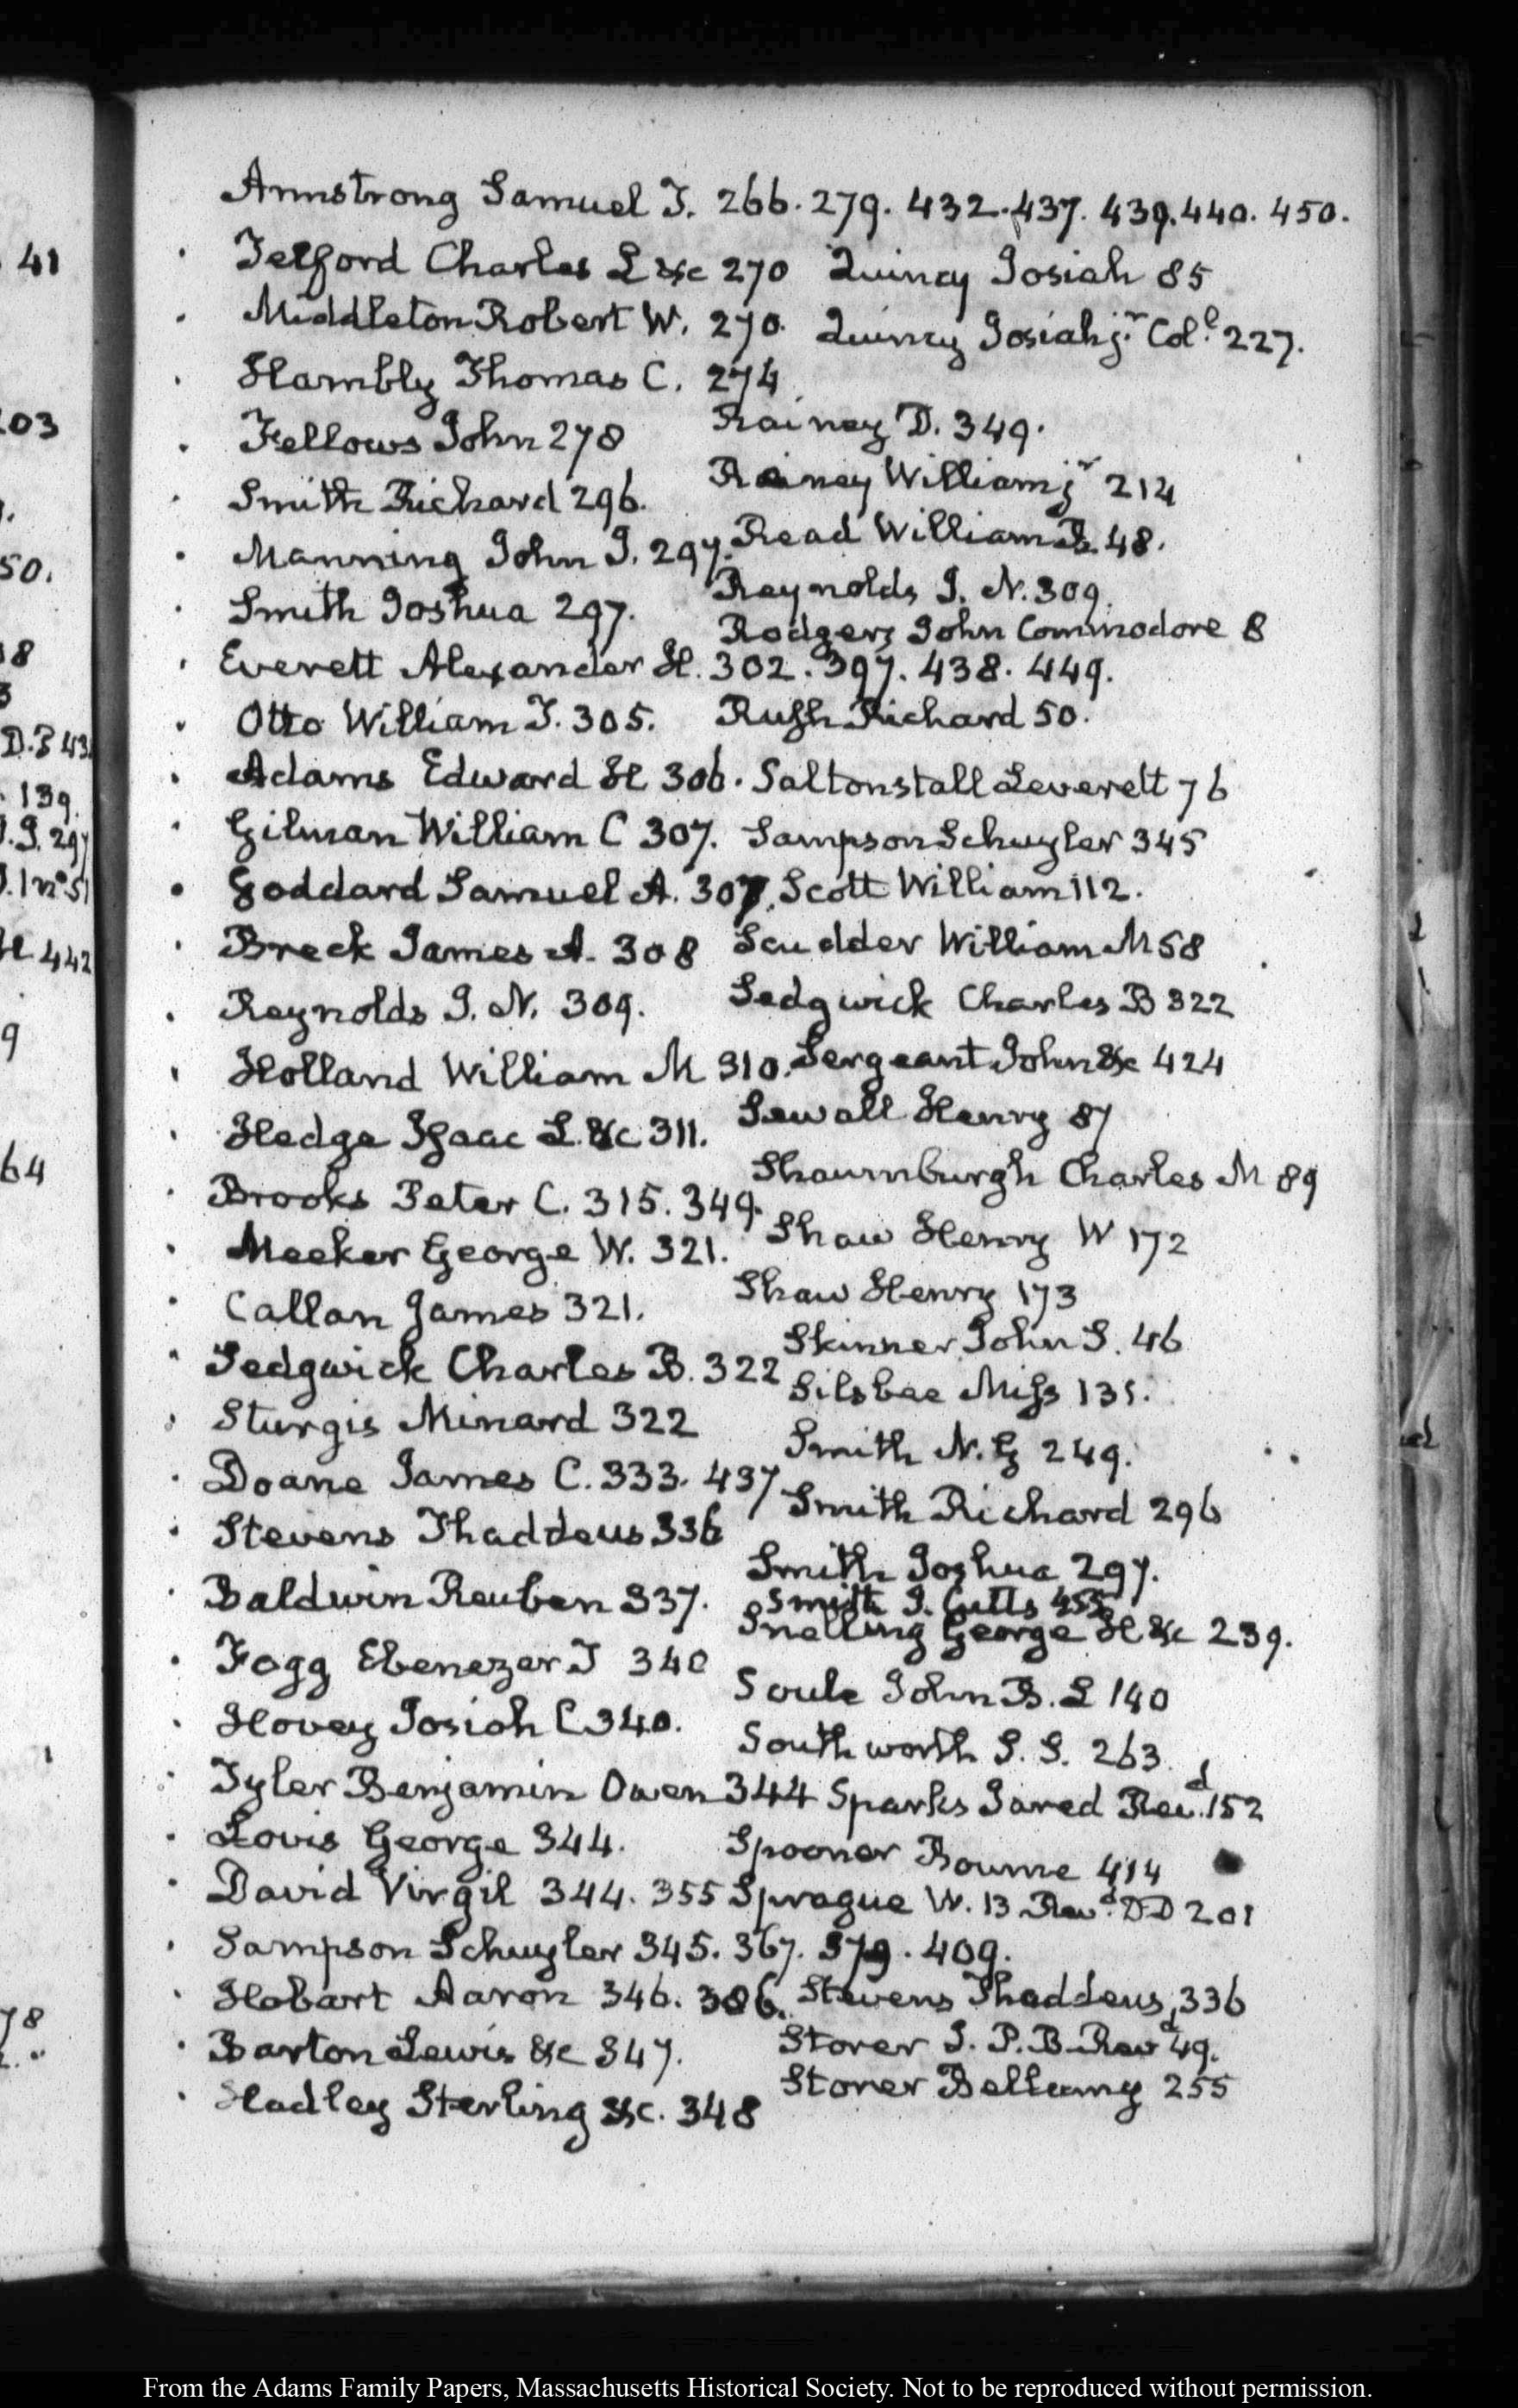 Armstrong Samuel T. 266. 279. 432. 437. 439. 440. 450.
Telford Charles L &c 270 Quincy Josiah 85
Middleton Robert W. 270. Quincy Josiah jr. Col.l 227.
Hambly Thomas C. 274
Rainey D. 349.
Fellows John 278
Rainey William jr 214
Smith Richard 296.
Read William B. 48.
Manning John J. 297.
Reynolds J. N. 309.
Smith Joshua 297.
Rodgers John Commodore 8
Everett Alexander H. 302. 397. 438. 449.
Otto William T. 305. Rush Richard 50.
Adams Edward H 306. Saltonstall Leverett 76
Gilman William C 307. Sampson Schuyler 345
Goddard Samuel A. 307. Scott William 112.
Breck James A. 308 Scudder William M 58
Reynolds J. N. 309. Sedgwick Charles B 322
Holland William M 310. Sergeant John &c 424
Hedge Isaac L. &c 311. Sewall Henry 87
Brooks Peter C. 315. 349. Shaumburgh Charles M 89
Meeker George W. 321. Shaw Henry W 172
Callan James 321. Shaw Henry 173
Skinner John S. 46
Sedgwick Charles B. 322 Silsbee Miss 131.
Sturgis Minard 322
Smith N. G 249.
Doane James C. 333. 437
Smith Richard 296
Stevens Thaddeus 336
Smith Joshua 297.
Baldwin Reuben 337. Smith J. Cutts 455
Snelling George H &c 239.
Fogg Ebenezer T 340
Soule John B. L 140
Hovey Josiah C 340.
Southworth S. S. 263.
Tyler Benjamin Owen 344 Sparks Jared Rev.d 152
Lovis George 344. Spooner Bourne 414
David Virgil 344. 355 Sprague W. B Rev.d DD 201
Sampson Schuyler 345. 367. 379. 409.
Hobart Aaron 346. 386. Stevens Thaddeus, 336
Barton Lewis &c 347. Storer J. P. B. Rev.d 49.
Storer Bellamy 255
Hadley Sterling &c. 348
41
03
50.
18
3
D. P 43
139
J. 297
H 442
9
64
78
From the Adams Family Papers, Massachusetts Historical Society. Not to be reproduced without permission.